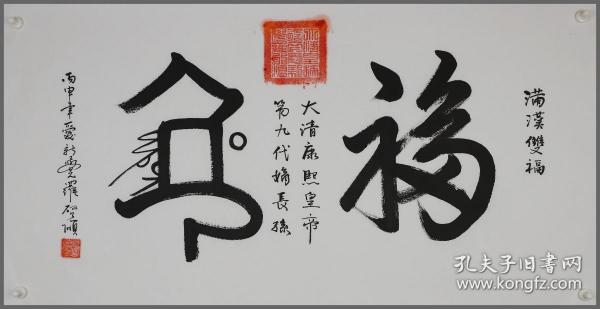 滿漢雙福
福
大清康熙皇帝
第九代嫡長孫
丙申年愛新覺羅
孔夫子旧书网
www.kongfz.com